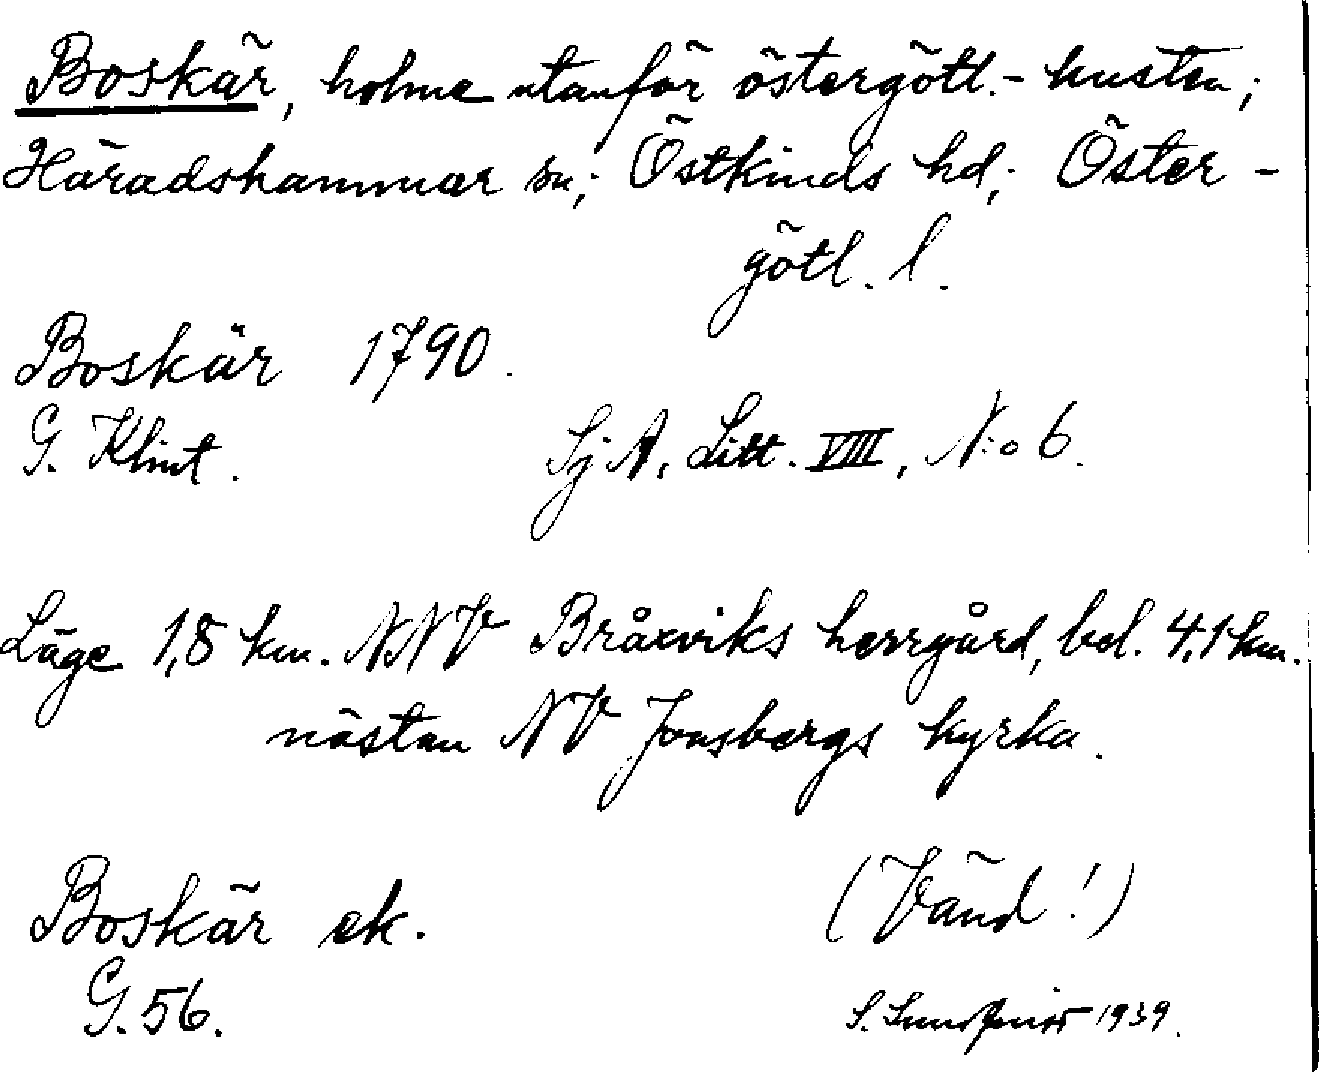 Boskär, holme utanför östergötl.- kusten;
Häradshammar sn; Östkinds hd; Öster-
götl. l.
Boskär 1790.
G. Klint. Sj A, Litt. VIII, N:o 6.
Läge 1,8 km. NNV Bråxviks herrgård, bel. 4,1 km.
nästan NV Jonsbergs kyrka.
Boskär ek. (Vänd!)
G. 56. S. 1939.